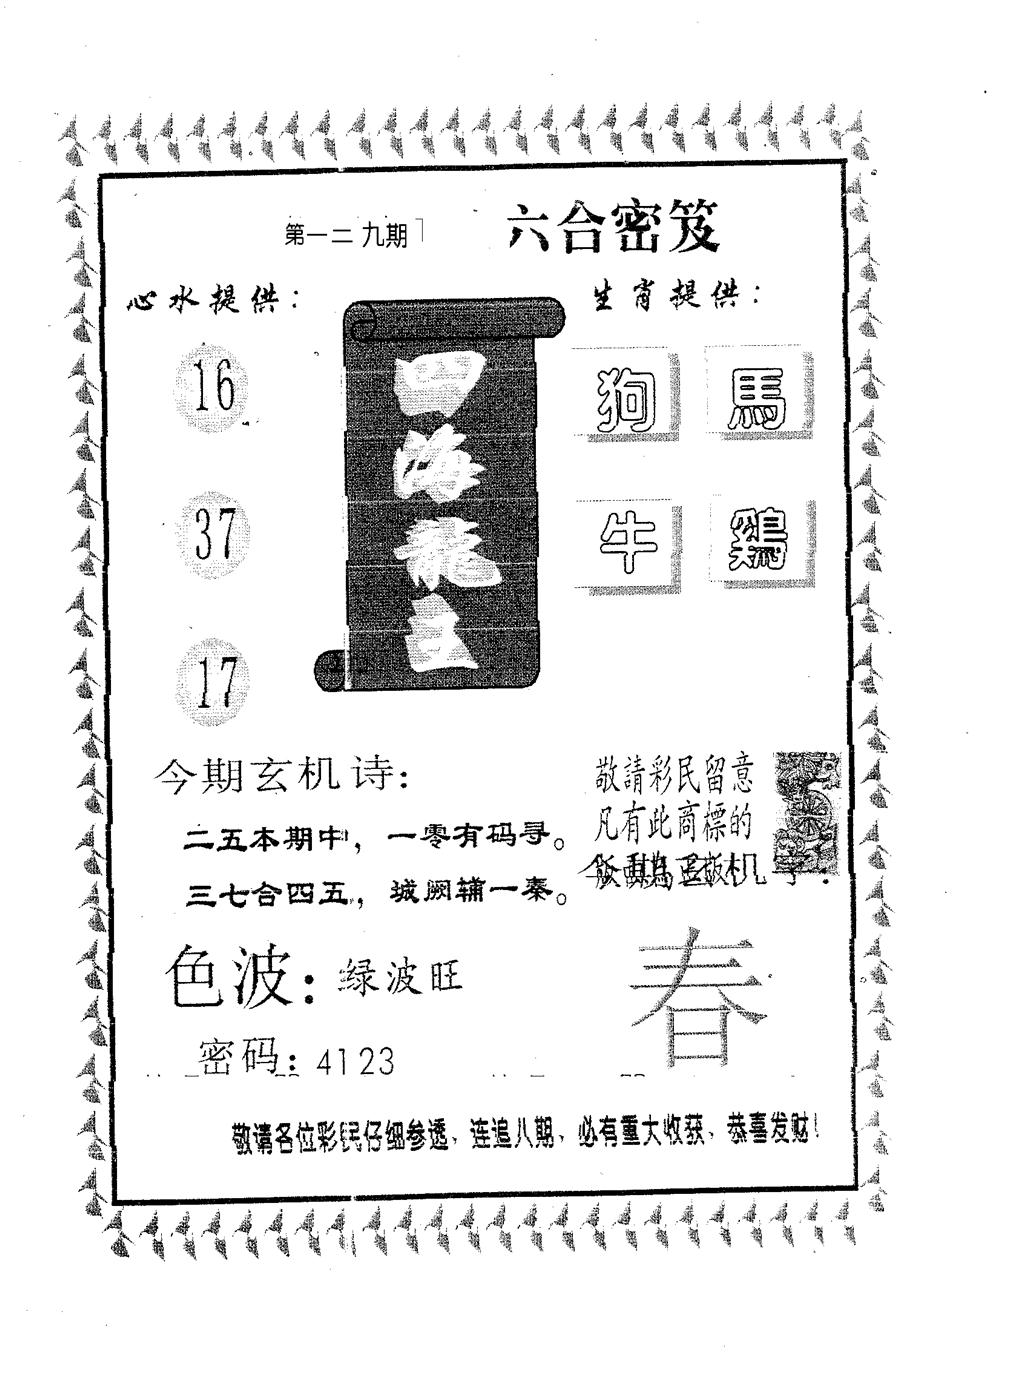 第一二九期
六合密笈
心水提供：
生肖提供：
16
37
17
四海龍王
狗 馬
牛 鷄
今期玄机诗：
二五本期中，一零有码寻。
三七合四五，城阙辅一秦。
敬請彩民留意
凡有此商標的
色波：绿波旺
春
密码：4123
敬请各位彩民仔细参透、连追八期、必有重大收获、恭喜发财！